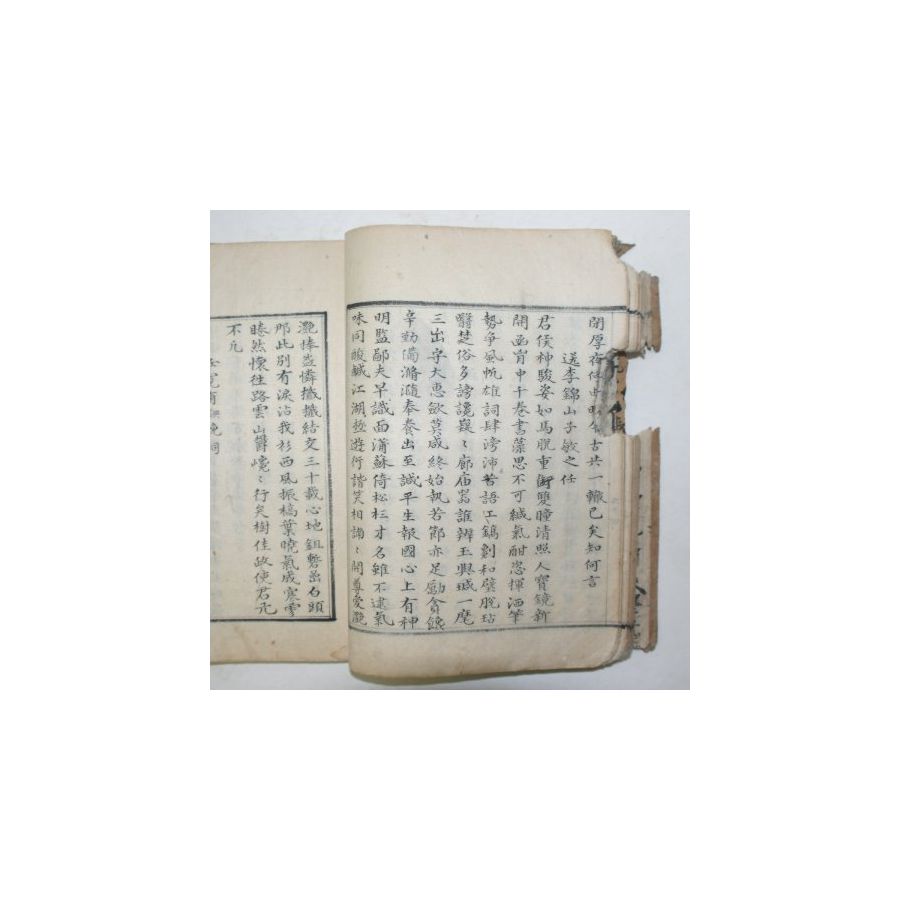 閉厚夜 古共一轍已矣知何言
送李錦山子敏之任
君侯神駿姿如馬脫重銜雙瞳清照人寶鏡新
開幽胷中千卷書藻思不可緘氣酣恣揮洒筆
勢爭風帆雄詞肆滂沛苦語工鐫劖和璧脫玷
翳楚俗多謗讒巍〻廊庙器誰辨玉與珹一麾
三出守大惠歛莫咸終始執苦節亦足勵貪饞
辛勤備滫瀡奉養出至誠平生報國心上有神
明監鄙夫早識面蒲蘇倚松杉才名雖不逮氣
味同酸鹹江湖極遊衍諧笑相諵〻開尊愛灔
灔捧盃憐摻摻結交三十載心地鉏嶄嵓石頭
那此別有淚沾我衫西風振槁葉曉氣成寒雰
睠然懷往路雲山鬱巉〻行矣樹佳政使君元
不凡
挽詞